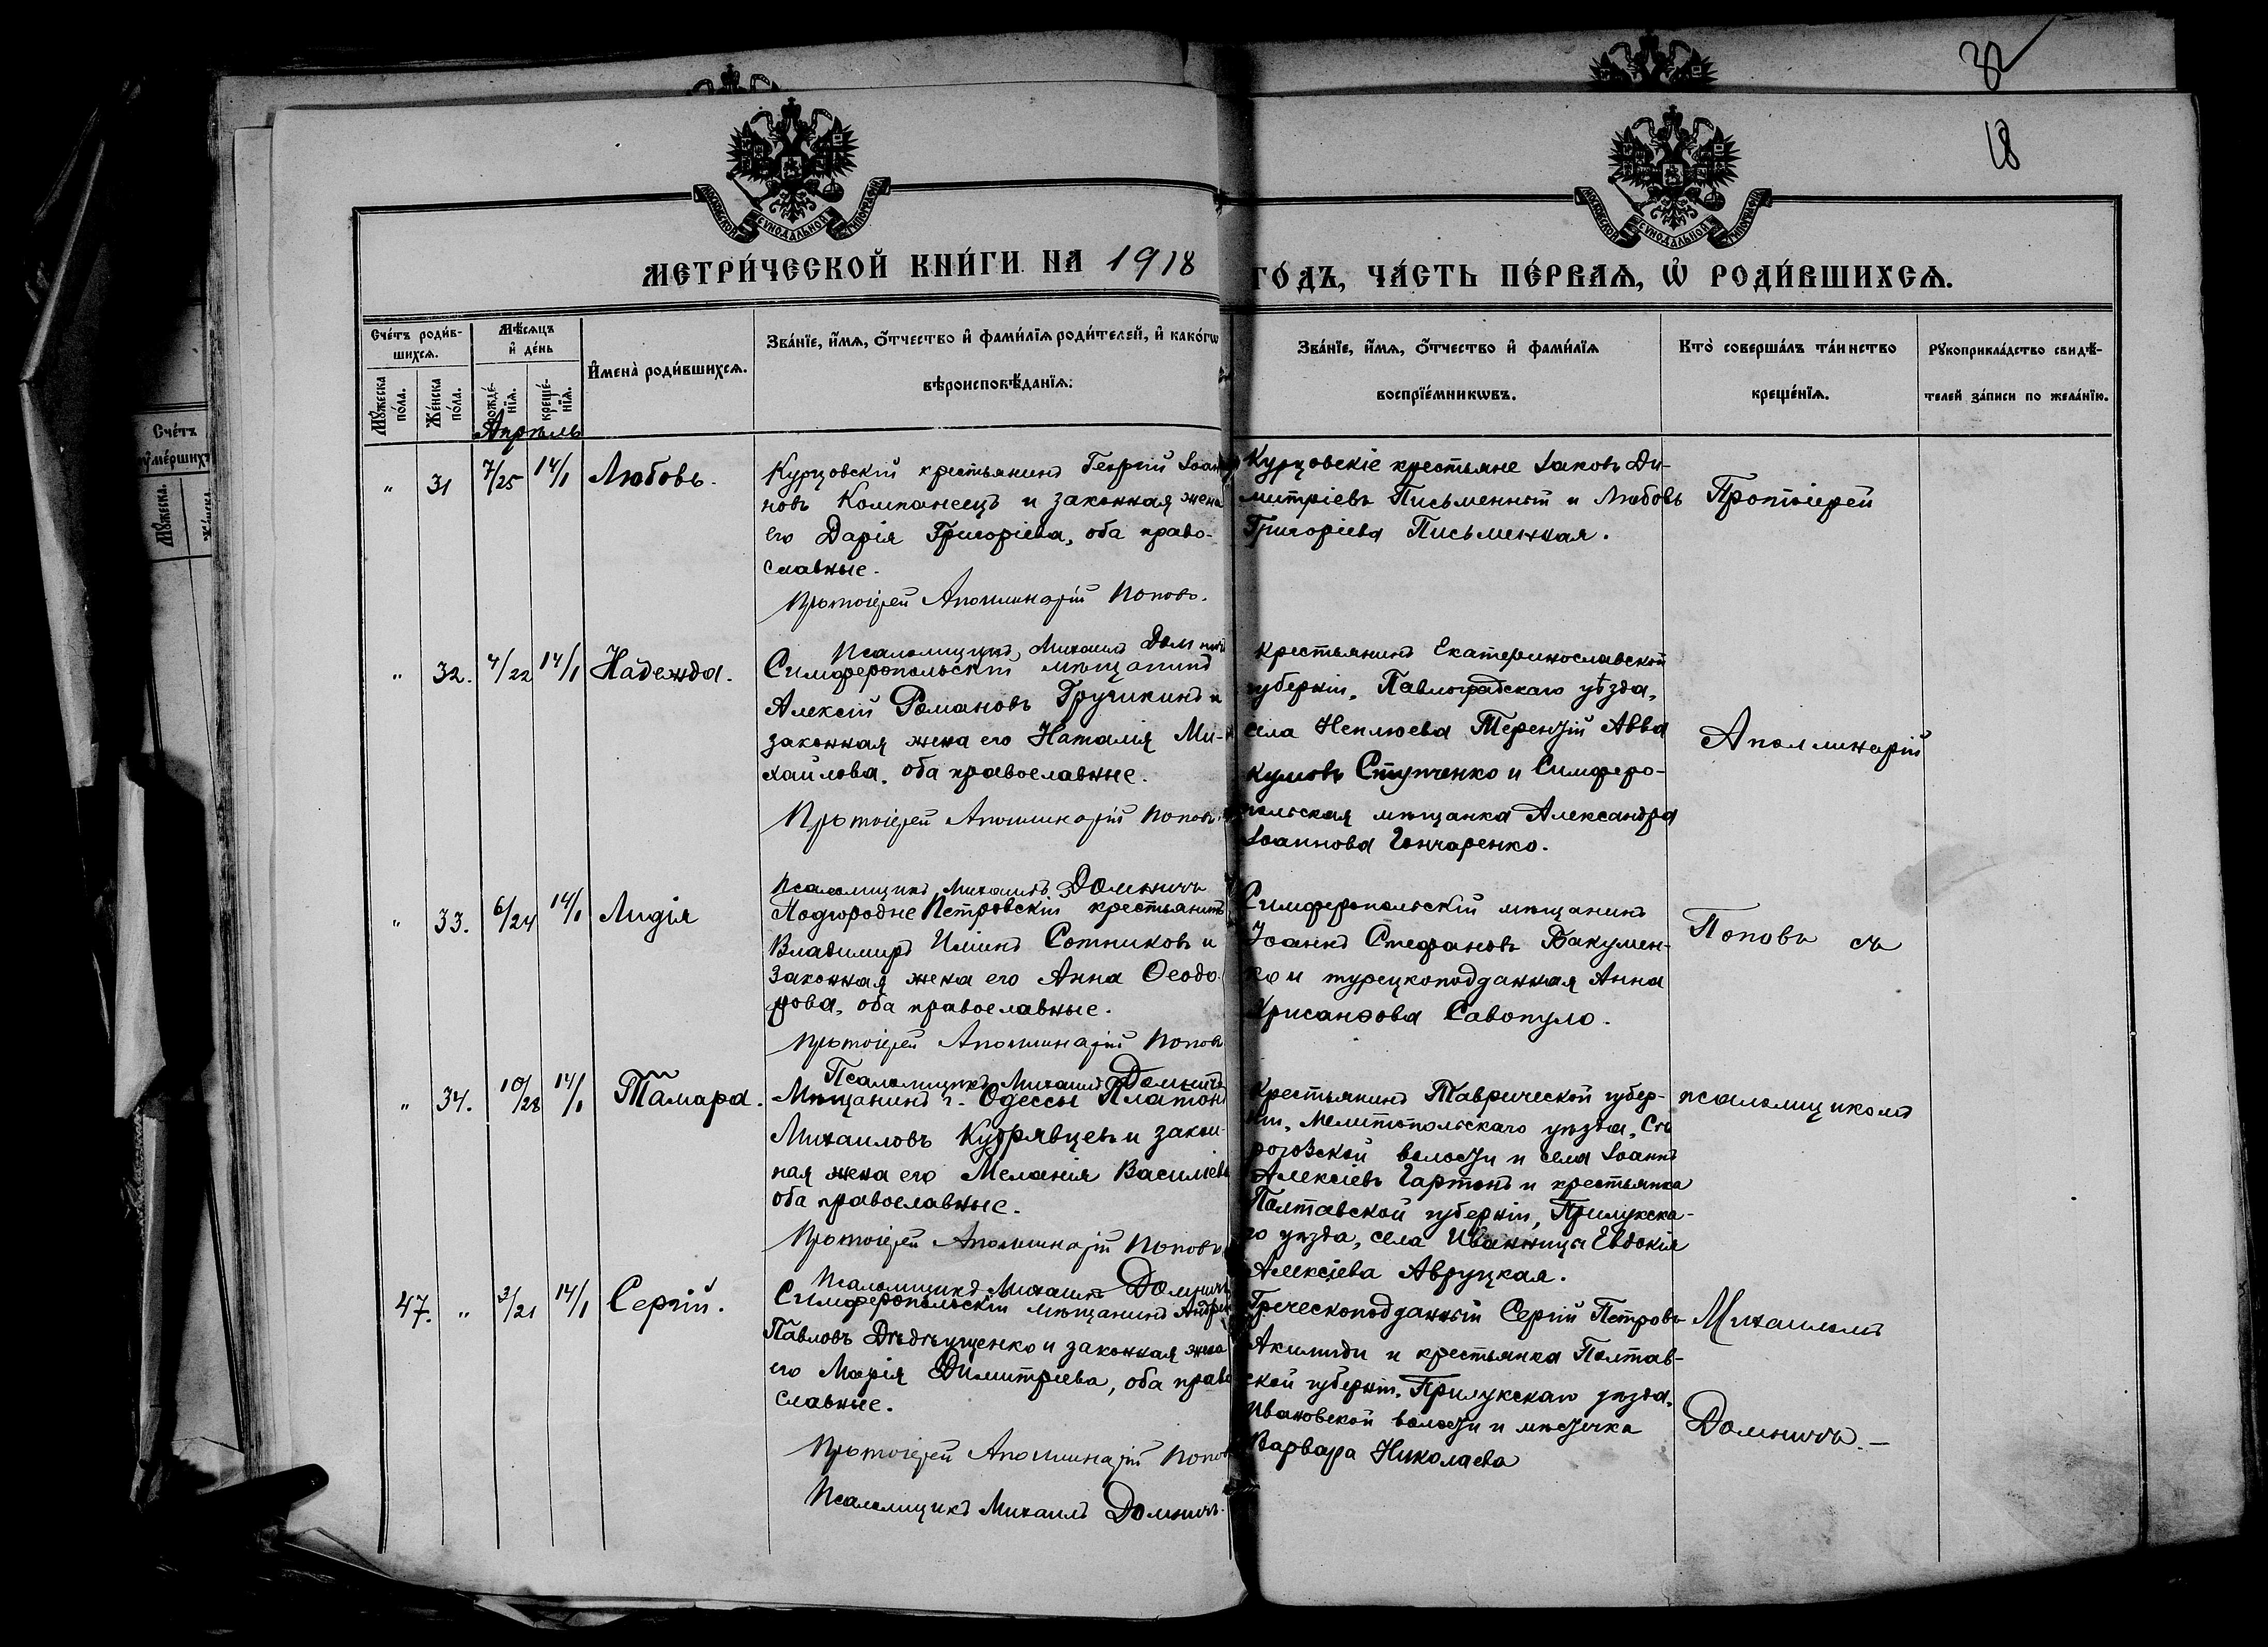 32
18
МОСКОВСКОЙ СѴНОДАЛЬНОЙ ТИПОГРАФІИ
МОСКОВСКОЙ СѴНОДАЛЬНОЙ ТИПОГРАФІИ
МЕТРИ́ЧЕСКОЙ КНИ́ГИ НА 1918 ГО́ДЪ, ЧА́СТЬ ПЕ́РВАѦ, Ѡ҆ РОДИ́ВШИХСѦ.
Сче́тъ роди́в-
шихсѧ.
Мꙋ́жеска по́ла.
Же́нска по́ла.
Мѣ́сѧцъ и҆ де́нь
рожде́-
нїѧ.
креще́-
нїѧ.
И҆мена̀ роди́вшихсѧ.
Зва́нїе, и҆́мѧ, ѻ҆́тчество и҆ фами́лїѧ роди́телей, и҆ како́гѡ
вѣроисповѣ́данїѧ:
Зва́нїе, и҆́мѧ, ѻ҆́тчество и҆ фами́лїѧ
воспрїе́мникѡвъ.
Кто̀ соверша́лъ та́инство
креще́нїѧ.
Рꙋкоприкла́дство свидѣ́-
телей за́писи по жела́нїю.
Сче́тъ
ᲂу҆ме́ршихъ
Мꙋ́жеска.
Апрѣль
" 31 7/25 14/1 Любовь.
Курцовскій крестьянинъ Георгій Іоан-
новъ Компанеецъ и законная жена
его Дарія Григоріева, оба право-
славные.
Протоіерей Аполлинарій Поповъ.
Псаломщикъ Михаилъ Домничъ
Курцовскіе крестьяне Іаковъ Ди-
митріевъ Письменный и Любовь
Григоріева Письменная.
Протоіерей
" 32. 4/22 14/1 Надежда.
Симферопольскій мѣщанинъ
Алексій Романовъ Гручикинъ и
законная жена его Наталія Ми-
хаилова, оба православные.
Протоіерей Аполлинарій Поповъ
Псаломщикъ Михаилъ Домничъ
крестьянинъ Екатеринославской
губерніи, Павлоградскаго уѣзда,
села Неплюева Терентій Авва
кумовъ Ступченко и Симферо-
польская мѣщанка Александра
Іоаннова Гончаренко.
Аполлинарій
" 33. 6/24 14/1 Лидія
Подгородне Петровскій крестьянинъ
Владимиръ Иліинъ Сотниковъ и
законная жена его Анна Ѳеодо-
рова, оба православные.
Протоіерей Аполлинарій Поповъ
Псаломщикъ Михаилъ Домничъ
Симферопольскій мѣщанинъ
Іоаннъ Стефановъ Бакумен-
ко и турецкоподданная Анна
Хрисанѳова Савопуло.
Поповъ съ
" 34. 10/28 14/1 Тамара.
Мѣщанинъ г. Одессы Платонъ
Михаиловъ Кудрявцевъ и закон-
ная жена его Меланія Василіева
оба православные.
Протоіерей Аполлинарій Поповъ
Псаломщикъ Михаилъ Домничъ
Крестьянинъ Таврической губер-
ніи, Мелитопольскаго уѣзда, Сѣ
рогозской волости и села Іоаннъ
Алексіевъ Гартонъ и крестьянка
Полтавской губерніи, Прилукска-
го уѣзда, села Иванница Евдокія
Алексіева Авруцкая.
псаломщикомъ
47. " 3/21 14/1 Сергій.
Симферопольскій мѣщанинъ Андрей
Павловъ Дѣдѣущенко и законная жена
его Марія Димитріева, оба право
славные.
Протоіерей Аполлинарій Поповъ
Псаломщикъ Михаилъ Домничъ.
Греческоподданный Сергій Петровъ
Акилиди и крестьянка Полтав-
ской губерніи, Прилукскаго уѣзда,
Ивановской волости и мѣстечка
Варвара Николаева
Михаиломъ
Домничъ. —